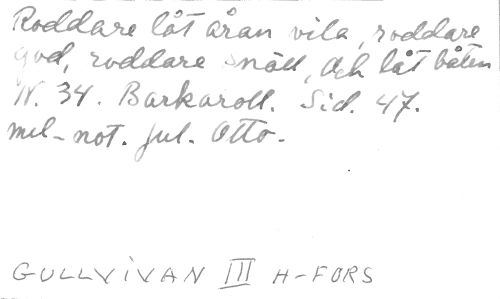 Roddare låt åran vila, roddare
god, roddare snäll, och låt båten
N. 34. Barkaroll. Sid. 47.
mel-not. Jul. Otto.
GULLVIVAN III H-FORS